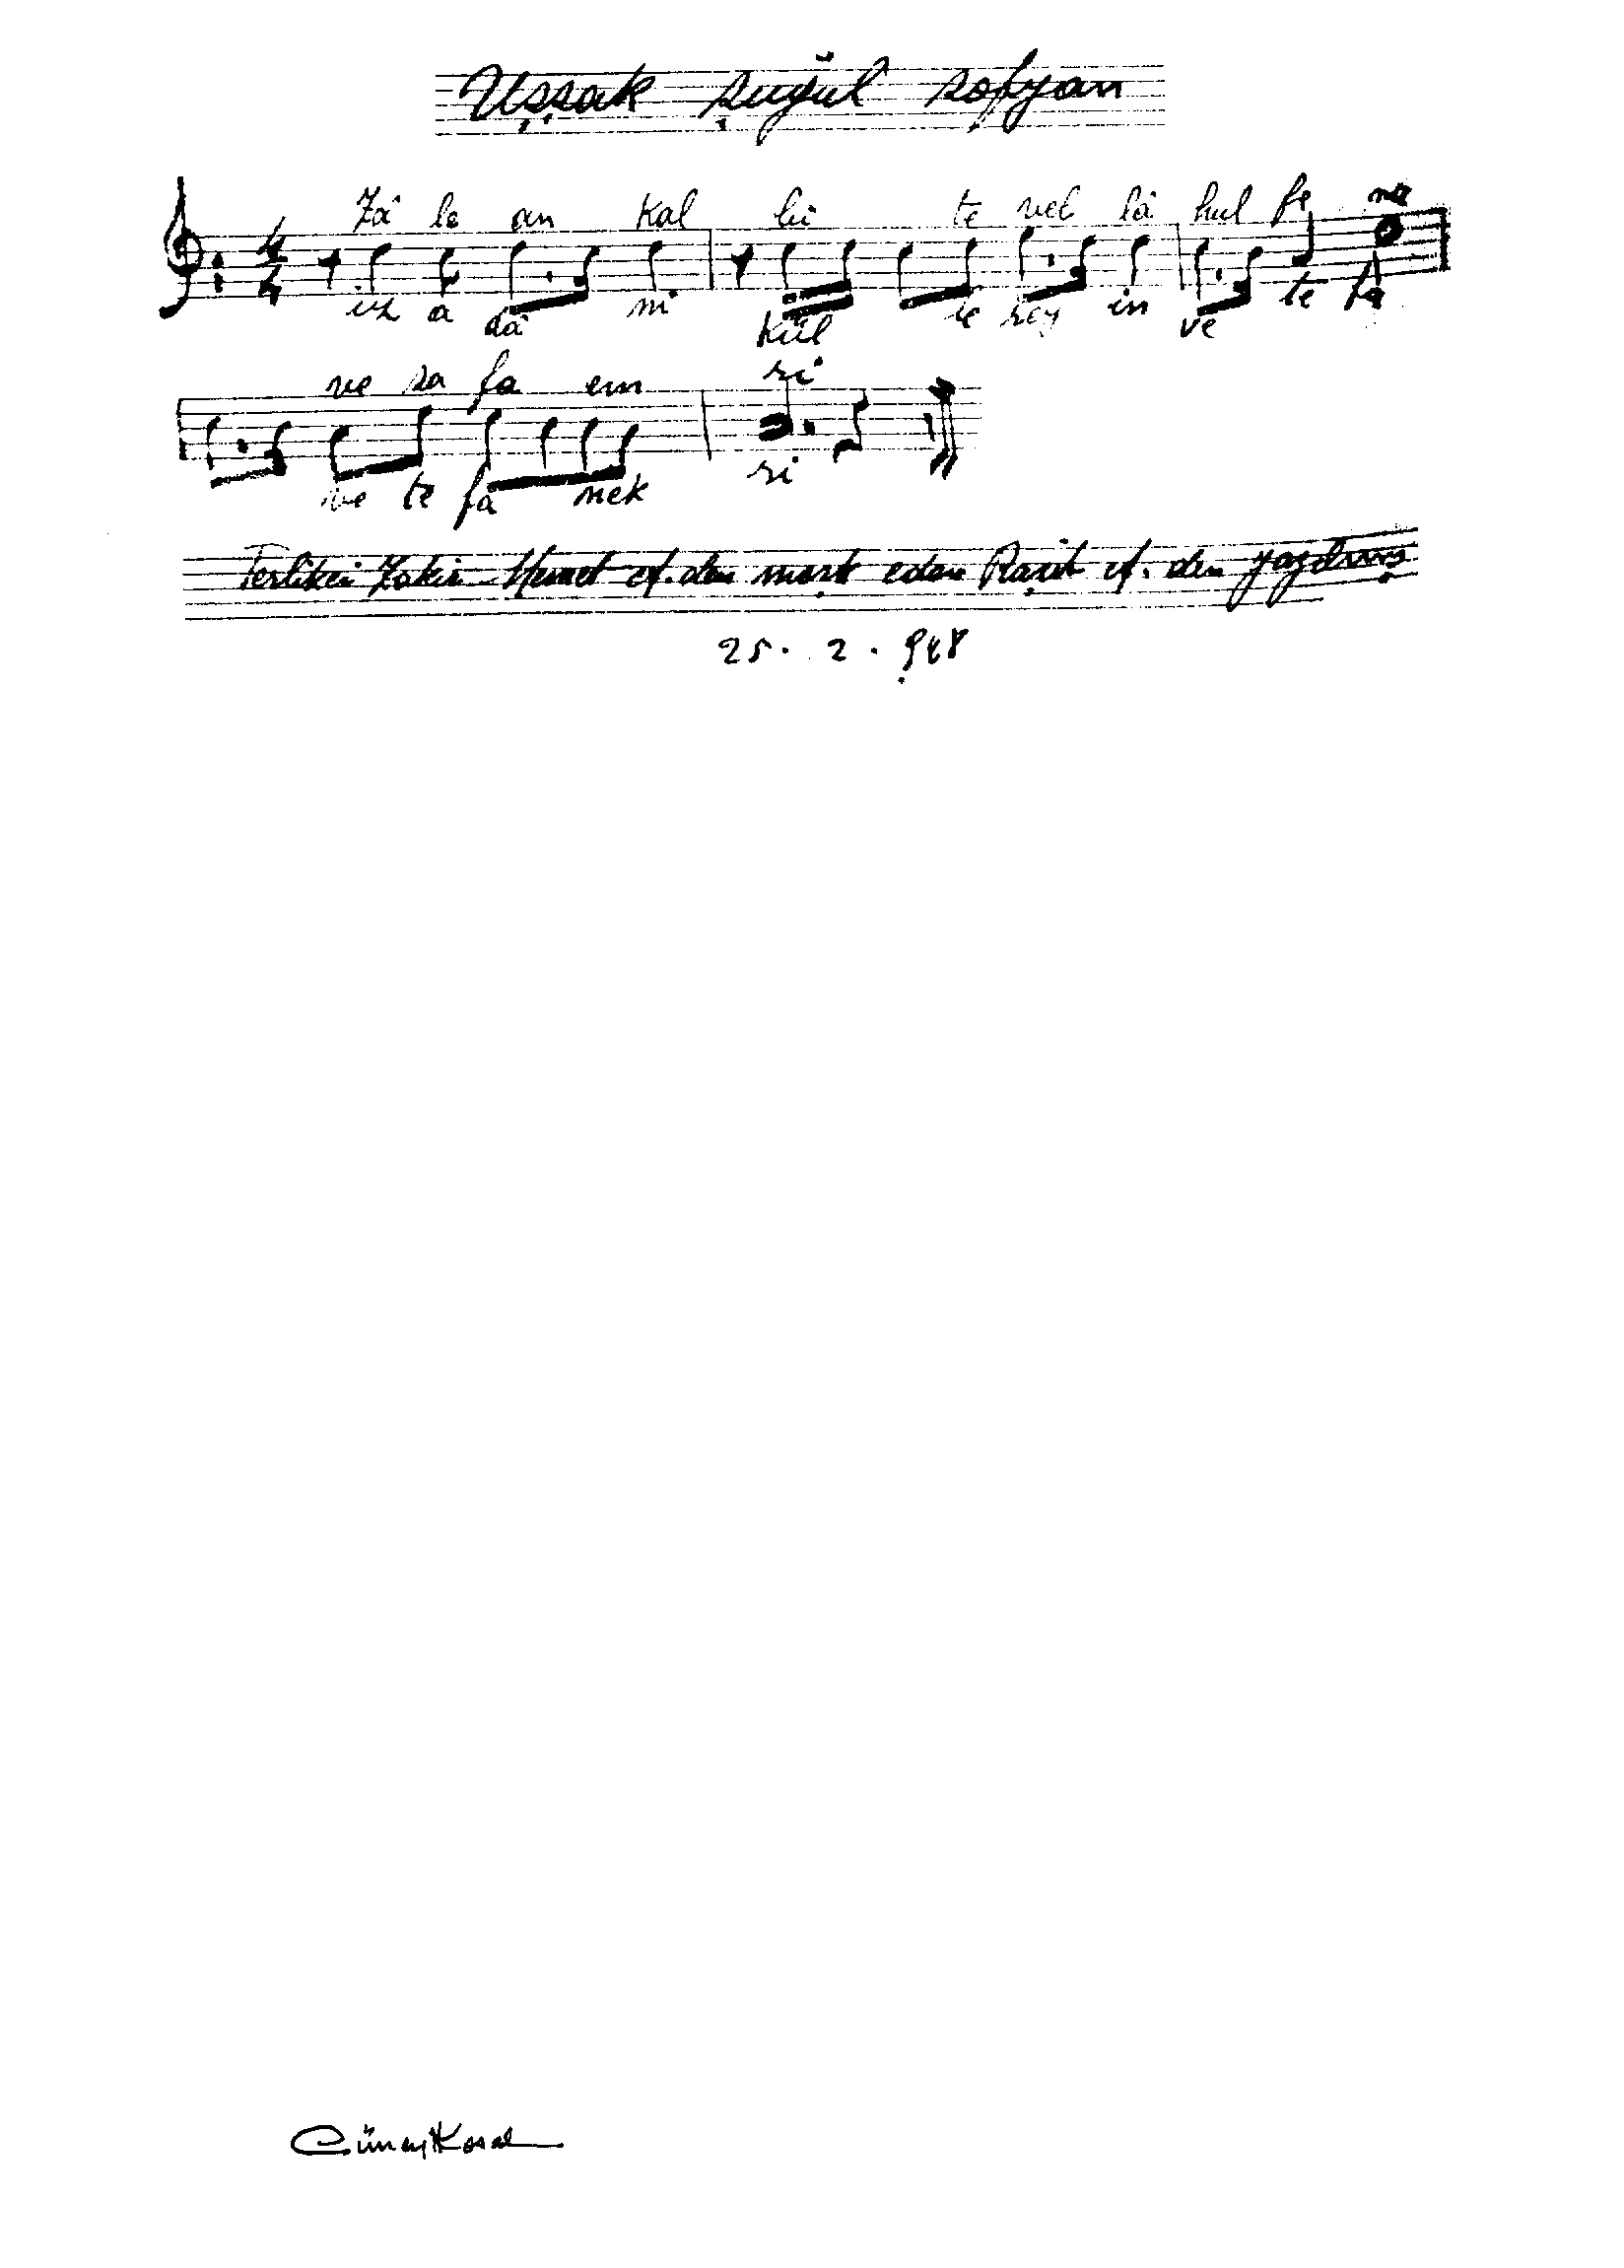 Uşşak şuğul sofyan
4 4
Zâ le an kal bi te vel lâ hul fe na
iz a dâ ni kül ie rey in ve te fa
ve sa fa em ri
ve te fa nek ri
Terlikci Zakir Hemet ef. den meşk eden Raşit ef. den yazdım
25 . 2 . 948
Cüneyt Kosal